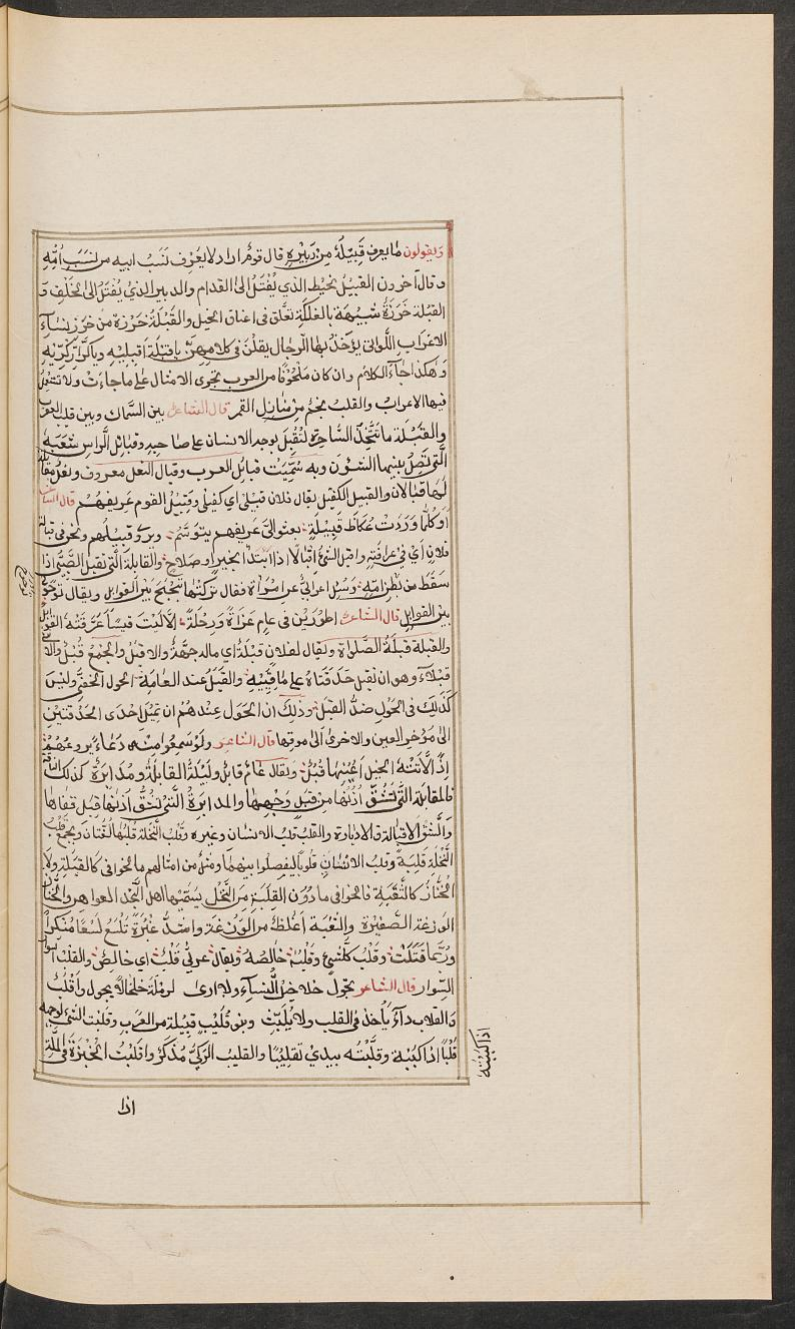 ويقولون ما يعرف قَبِيْلَهُ مِنْ دَبِيْرِهِ قال قوم اراد لا يعرف نَسَبُ ابيه من نَسَبِ اُمِّهِ
وقال آخرون القبيل لخيط الذي يُفْتَلُ الى القدام والدبير الذي يُفْتَلُ الى الخلف و
القبلة خَرَزَةٌ شبيهة بالفلكة تعلّق في اعناق الخيل والقَبْلَةُ خَرَزة من خَرَز نساء
الاعراب اللّواتي يؤخّذن بها الرجال يقلن في كلامهنّ يا قَبْلَة اقبليه ويا كَرَار كُرّيه
وهكذا جاء الكلام وان كان ملحونا من العرب يجري الامثال على ما جاءت ولا تستعمل
فيها الاعراب والقلب نجم من منازل القمر قال الشاعر بين السّماك وبين قلب العقرب
والقَبَلة ما تتّخذ السّاحرة لتُقْبِل بوجه الانسان على صاحبه وقبائل الراس شعبه
الّتي تصل بينها الشؤن وبه سُمِّيَت قبائل العرب وقبال النعل معروف ونعل مقابلة
لها قبالان والقبيل الكفيل يقال فلان قبيلي اي كفيلي وقبيل القوم عريفهم قال الشاعر
اوكلّما وردت عكاظ قبيلة بعثوا الىّ عريفهم يتوسّم ويروى قبيلهم ونحن في قبالة
فلان اي في عرافته واقبل الشئ اقبالا اذا ابتدأ بخير او صلاح والقابلة الّتي تقبل الصّبيّ اذا
سقط من بَظْرِ امّه وسئل اعرابي عن امراة فقال تركتها تجحبح بين القوابل ويقال توحوح
توحوح
بين القوابل قال الشاعر اطَوْدَيْن في عام غزاةً ورِحْلَةً الا ليت قيساً غرّقته القوابل
والقبلة قبلة الصّلواة ويقال لفلان قبلة اي ماله جهةٌ والاقبل والجمع قُبْل والانثى
قبلاء وهو ان تقبل حدقتاه على ماقييه والقَبَل عند العامة الحول الخفيّ وليس
كذلك في الحول ضدّ القبل وذلك ان الحَوَل عندهم ان تميل احدى الحدقتين
الى مؤخر العين والاخرى الى موقها قال الشاعر ولو سمعوا منه دُعاءً يروعهم
اِذًا لَأتَتْهُ الخيل اَعْيُنُها قُبْل ويقال عامٌ قابل وليلة القابلة ومدابرة كذلك الناقة
فالمقابلة التي تشقّ اذنها من قبل وجهها والمدابرة التي تشقّ اذنها قبل قفاها
والشق الاقبالة والادبارة والقلب قلب الانسان وغيره وقلب النخلة قلبها لغتان ويجمع قلب
النخلة قلبة وقلب الانسان قلوباً ليفصلوا بينهما ومثل من امثالهم ما الخوافي كالقلبة ولا
الخُنّاز كالثُّعَبة فالخوافي ما دون القلبة من النخل يسمّيها اهل النجد العواهر والخنّاز
الوزغة الصغيرة والثعبة اغلظ من الوزغة واشدّ غبرة تلسع لسعا منكرا
ورُبّما قتلت وقلب كلّ شئ وقلبه خالصه ويقال عربيّ قلب اي خالص والقلب السوار
السّوار قال الشاعر تجول خلاخيل النساء ولا ارى لرملة خلخالا يجول ولا قلب
والقلاب داء يأخذ في القلب ولا يلبث وبنو قُليب قبيلة من العرب وقلبت الشئ لوجهه
قلبًا اذا كببته وقلّبته بيدي تقليبًا والقليب الركيّ مذكّر واقلبت الخبزة في الملّة
اذا كببته
اذا